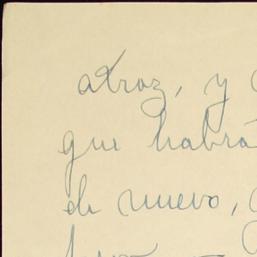 atroz, y
que habrá
de nuevo,